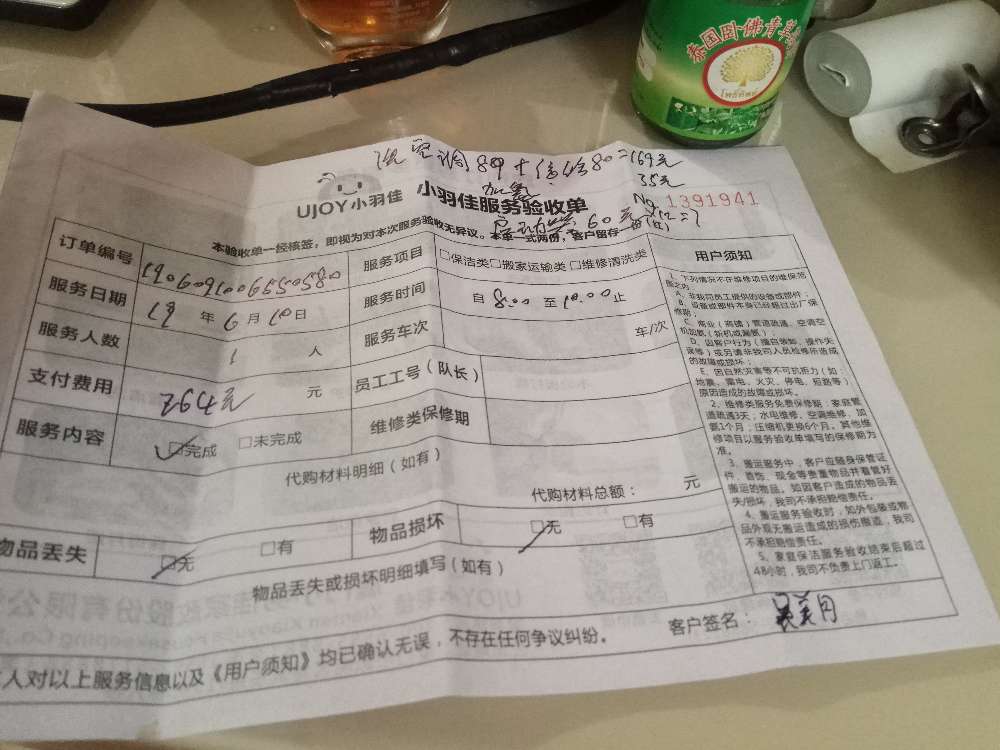 泰国卧佛青草
โพธิ์ทิพย์
空调89+维修80=169元
加氟 35元
UJOY小羽佳 小羽佳服务验收单
No 1391941
60元
本验收单一经核签，即视为对本次服务验收无异议。本单一式两份，客户留存一份（红）
订单编号 190609100655058
服务项目 □保洁类□搬家运输类 □维修清洗类
服务日期 19 年 6 月 10 日
服务时间 自 8:00 至 10:00 止
服务人数 1 人
服务车次 车/次
支付费用 264元 元
员工工号（队长）
服务内容 □完成 □未完成
维修类保修期
代购材料明细（如有）
代购材料总额： 元
物品丢失 □无 □有
物品损坏 □无 □有
物品丢失或损坏明细填写（如有）
人对以上服务信息以及《用户须知》均已确认无误，不存在任何争议纠纷。
客户签名：
用户须知
1、下列情况不在维修项目的维保范围之内
A、非我司员工提供的设备或部件；
B、设备或部件本身已经超过出厂保修期；
C、商业（商铺）管道疏通、空调空机加氟（拆机或漏氟）
D、因客户行为（擅自领卸、操作失误等）或另请非我司人员检修所造成的故障或损坏；
E、因自然灾害等不可抗拒力（如：地震、雷电、火灾、停电、短路等）原因造成的故障或损坏。
2、维修类服务免费保修期：家庭管道疏通3天，水电维修、空调维修、加氟1个月；压缩机更换6个月。其他维修项目以服务验收单填写的保修期为准。
3、搬运服务中，客户应随身保管证件、首饰、现金等贵重物品并看管好搬运的物品。如因客户造成的物品丢失/损坏，我司不承担赔偿责任。
4、搬运服务验收时，如外包装或物品外观无搬运造成的损伤痕迹，我司不承担赔偿责任。
5、家庭保洁服务验收结束后超过48小时，我司不负责上门返工。